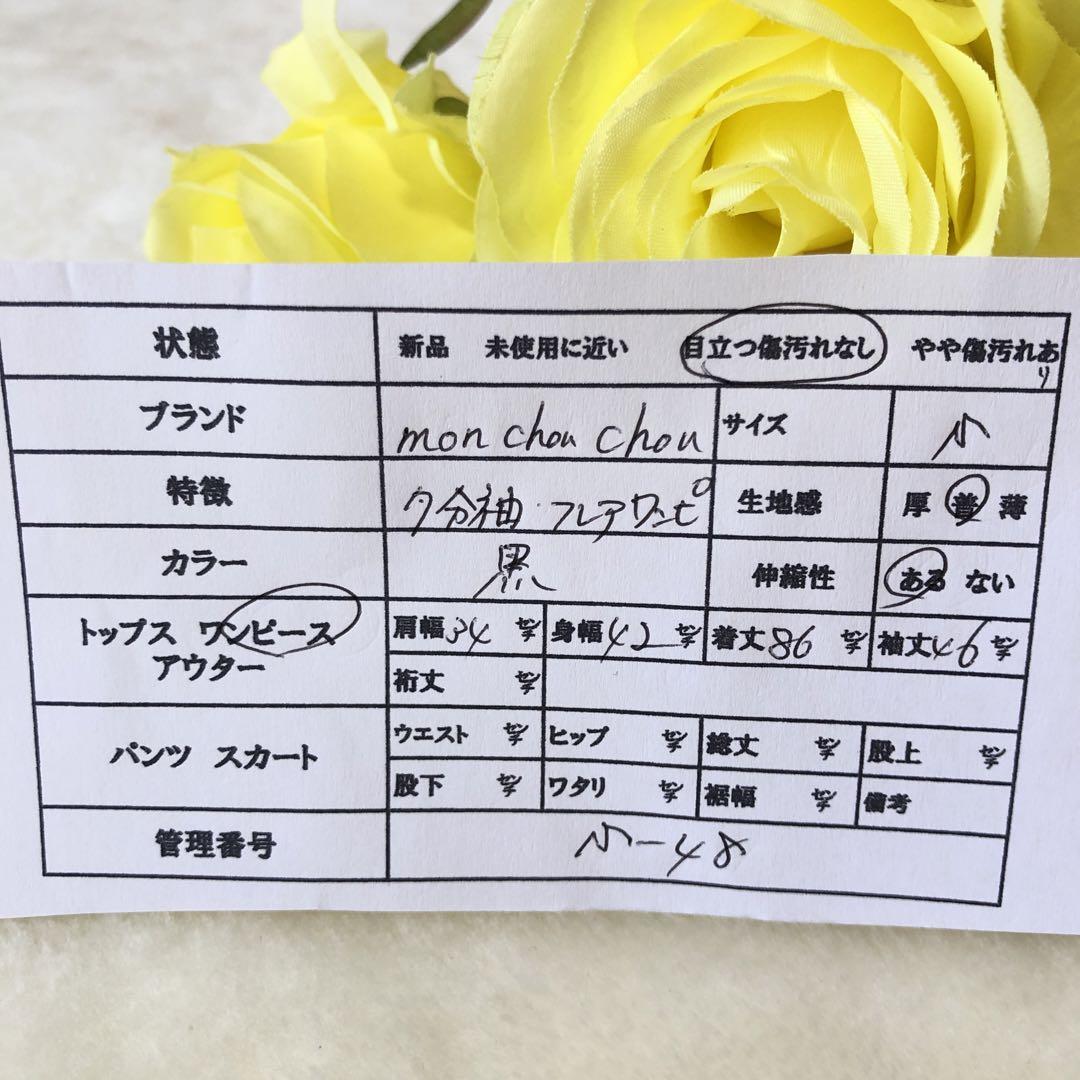 状態 新品 未使用に近い 目立つ傷汚れなし やや傷汚れあり
ブランド mon chou chou サイズ M
特徴 7分袖・フレアワンピ 生地感 厚 普 薄
カラー 黒 伸縮性 ある ない
トップス ワンピース 肩幅34センチ 身幅42センチ 着丈86センチ 袖丈46センチ
アウター 裄丈 センチ
パンツ スカート ウエスト センチ ヒップ センチ 総丈 センチ 股上 センチ
股下 センチ ワタリ センチ 裾幅 センチ 備考
管理番号 M-48